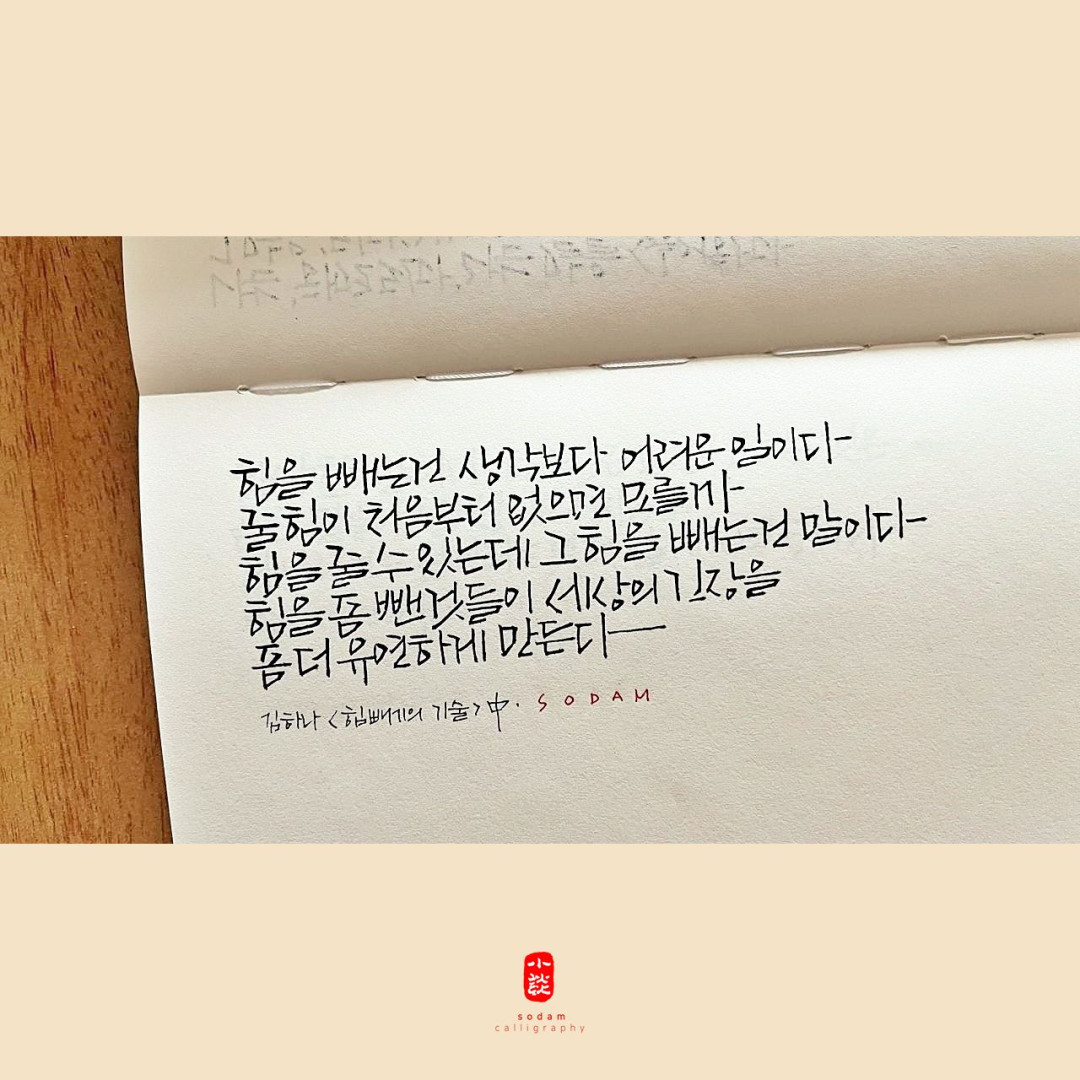 힘을 빼는건 생각보다 어려운 일이다
줄힘이 처음부터 없으면 모를까
힘을 줄 수 있는데 그 힘을 빼는건 말이다
힘을 좀 뺀것들이 세상의 긴장을
좀 더 유연하게 만든다
김하나 <힘빼기의 기술> 中. SODAM
小談
sodam
calligraphy